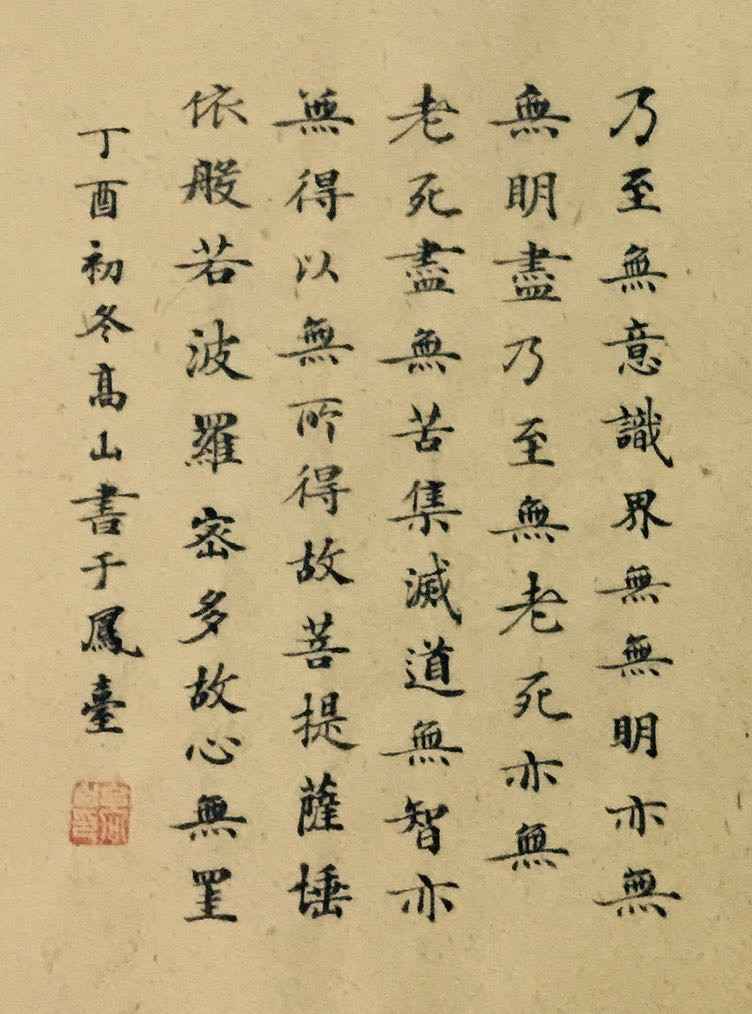 乃至無意識界無無明亦無
無明盡乃至無老死亦無
老死盡無苦集滅道無智亦
無得以無所得故菩提薩埵
依般若波羅密多故心無罣
丁酉初冬高山書于鳳臺